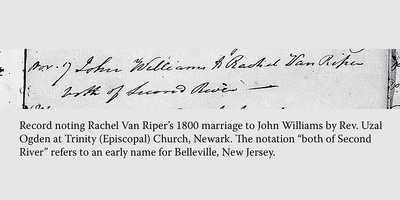 Nov. 9 John Williams & Rachel Van Riper
both of Second River —
Record noting Rachel Van Riper's 1800 marriage to John Williams by Rev. Uzal
Ogden at Trinity (Episcopal) Church, Newark. The notation “both of Second
River” refers to an early name for Belleville, New Jersey.